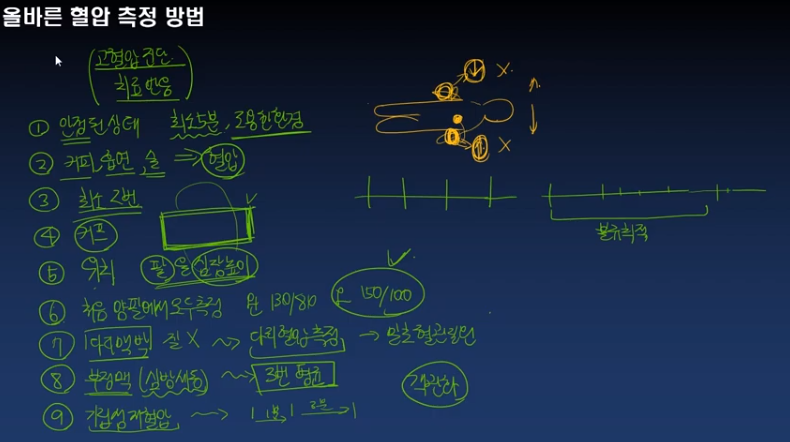 올바른 혈압 측정 방법
고혈압 진단
치료 반응
① 안정된 상태 최소 5분, 조용한 환경
② 커피, 흡연, 술 ⇒ 혈압
③ 최소 2번
④ 커프
⑤ 위치 팔을 심장높이
⑥ 처음 양팔에서 모두 측정 왼 130/80 오 150/100
⑦ 다리맥박 잘 X ~> 다리혈압측정 → 말초혈관질환
⑧ 부정맥 (심방세동) ~> 3번 평균
⑨ 기립성 저혈압 ~> 1분 2분
↓ X
↑ X
불규칙적
객관화